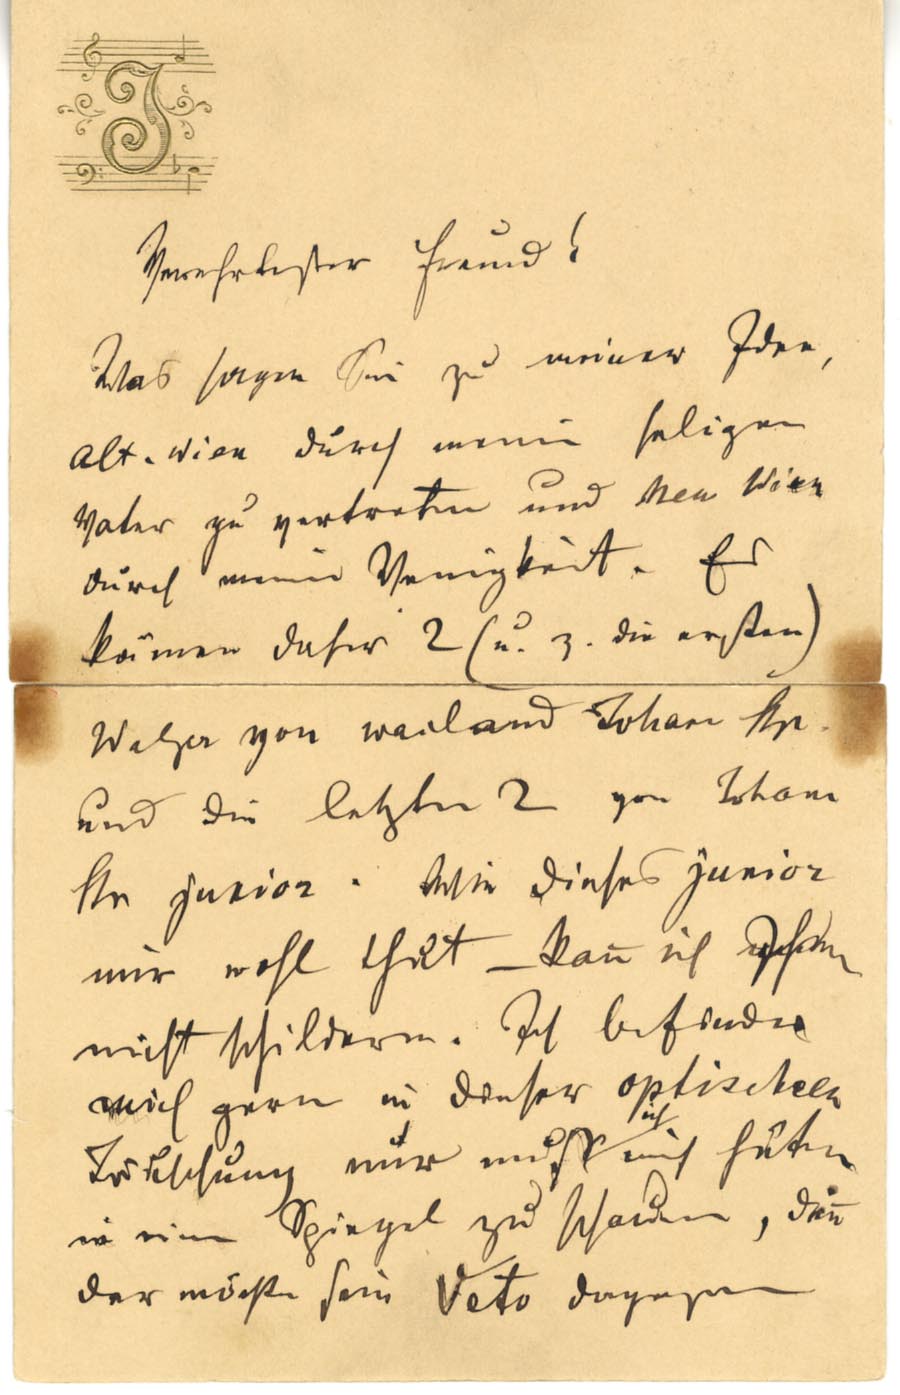 J
Verehrtester Freund!
Was sagen Sie zu meiner Idee,
Alt-Wien durch meinen seligen
Vater zu vertreten und Neu Wien
durch meine Wenigkeit. Es
kämen daher 2 (u. z. die ersten)
Walzer von weiland Johann Str.
und die letzten 2 von Johann
Str junior. Wie dieses junior
mir wohl thut – kan̄ ich Ihnen
nicht schildern. Ich befinde
mich gern in dieser optischen
Täuschung nur muß ich mich hüten
in einen Spiegel zu schauen, den̄
der möchte sein Veto dagegen